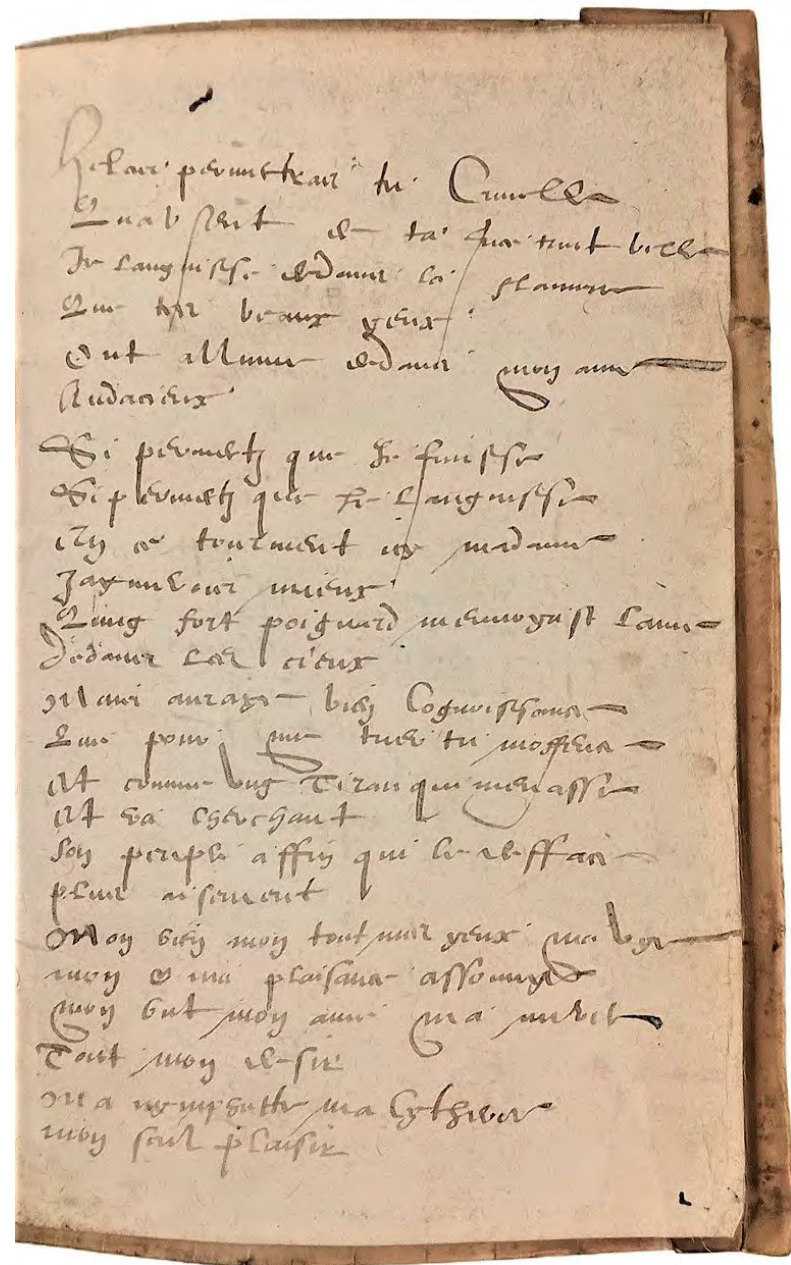 Helas permettras tu Cruelle
Quabsent de ta face tant belle
Je languisse dedans la flamme
Que tes beaux yeux
Ont allume dedans mon ame
Audacieux
Si permetz que Je finisse
Si permetz que Je Languisse
En ce tourment icy madame
Jaymerois mieux
Qung fort poignard menvoyast Lame
Dedans Les cieux
Mais auraye bien Cognoissance
Que pour me tuer tu moffence
Et comme ung Tiran qui menasse
Et va cherchant
Son peuple affin qui le defface
plus aisement
Mon bien mon tout mes yeux ma vye
mon & ma plaisance assouvye
mon but mon ame ma
Tout mon desir
Ma nymphette ma Cytheree
mon seul plaisir